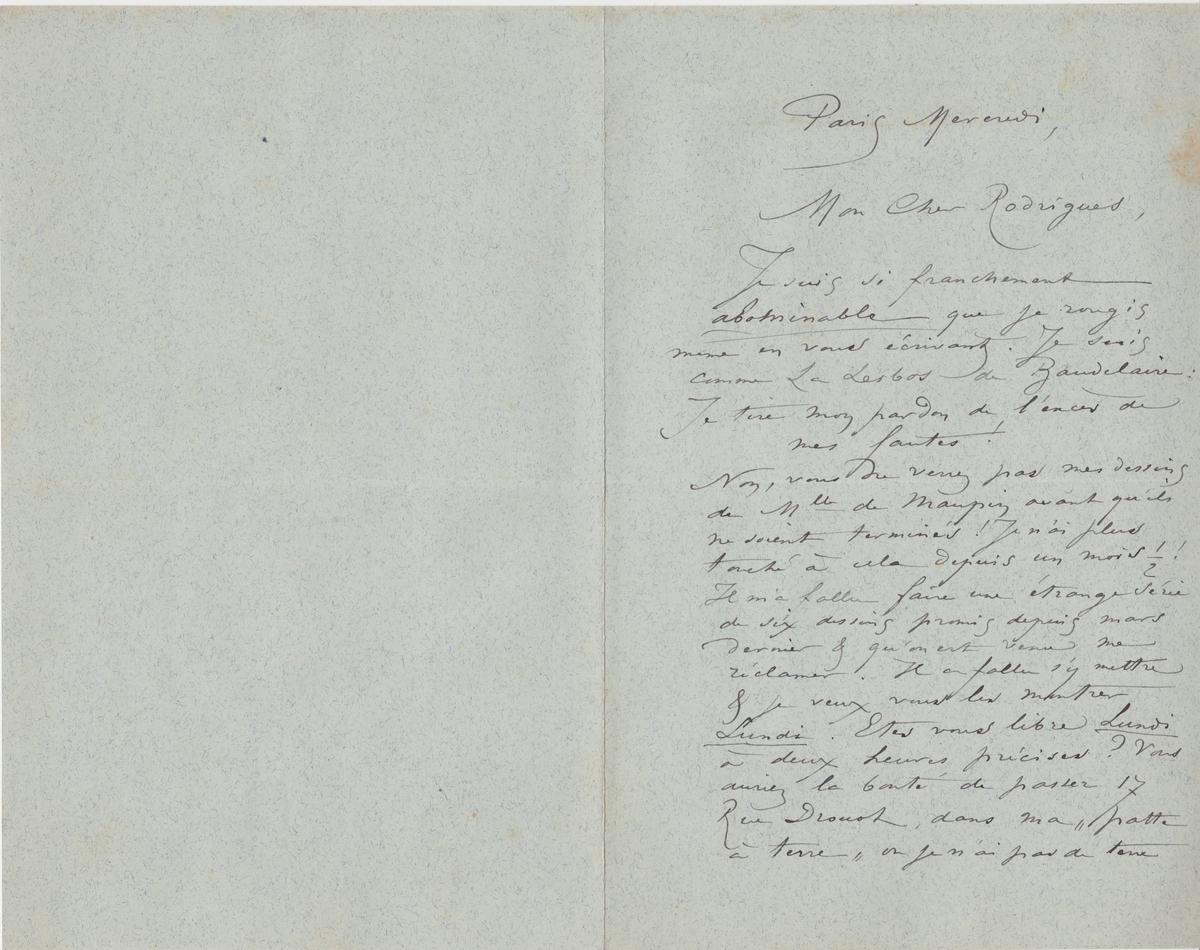 Paris Mercredi,
Mon Cher Rodrigues,
Je suis si franchement
abominable que je rougis
même en vous écrivant. Je suis
comme La Lesbos de Baudelaire :
Je tire mon pardon de l'encès de
mes fautes !
Non, vous ne verrez pas mes dessins
de Mlle de Maupin avant qu'ils
ne soient terminés ! Je n'ai plus
touché à cela depuis un mois 1/2 !
Il m'a fallu faire une étrange série
de six dessins promis depuis mars
dernier & qu'on est venu me
réclamer. Il a fallu s'y mettre
& je veux vous les montrer
Lundi. Etes vous libre Lundi
à deux heures précises ? Vous
auriez la bonté de passer 17
Rue Drouot, dans ma „ patte
à terre „ ou je n'ai pas de terre